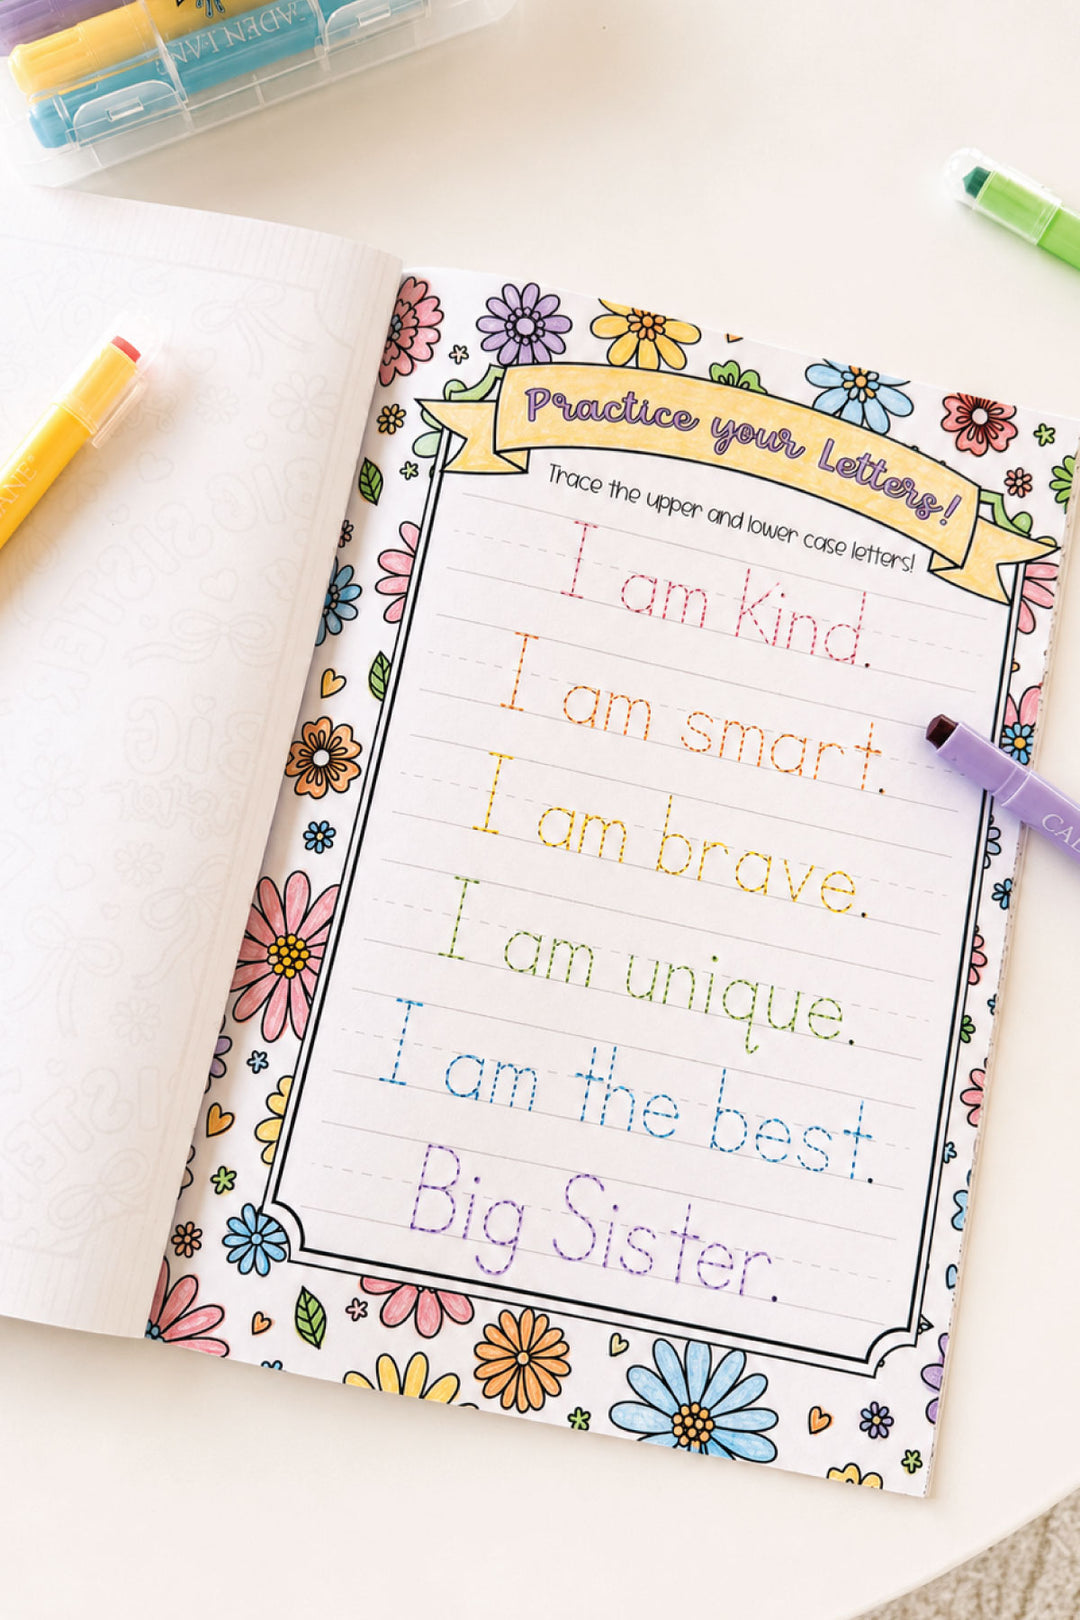 CADEN LANE
Practice your Letters!
Trace the upper and lower case letters!
I am kind.
I am smart.
I am brave.
I am unique.
I am the best.
Big Sister.